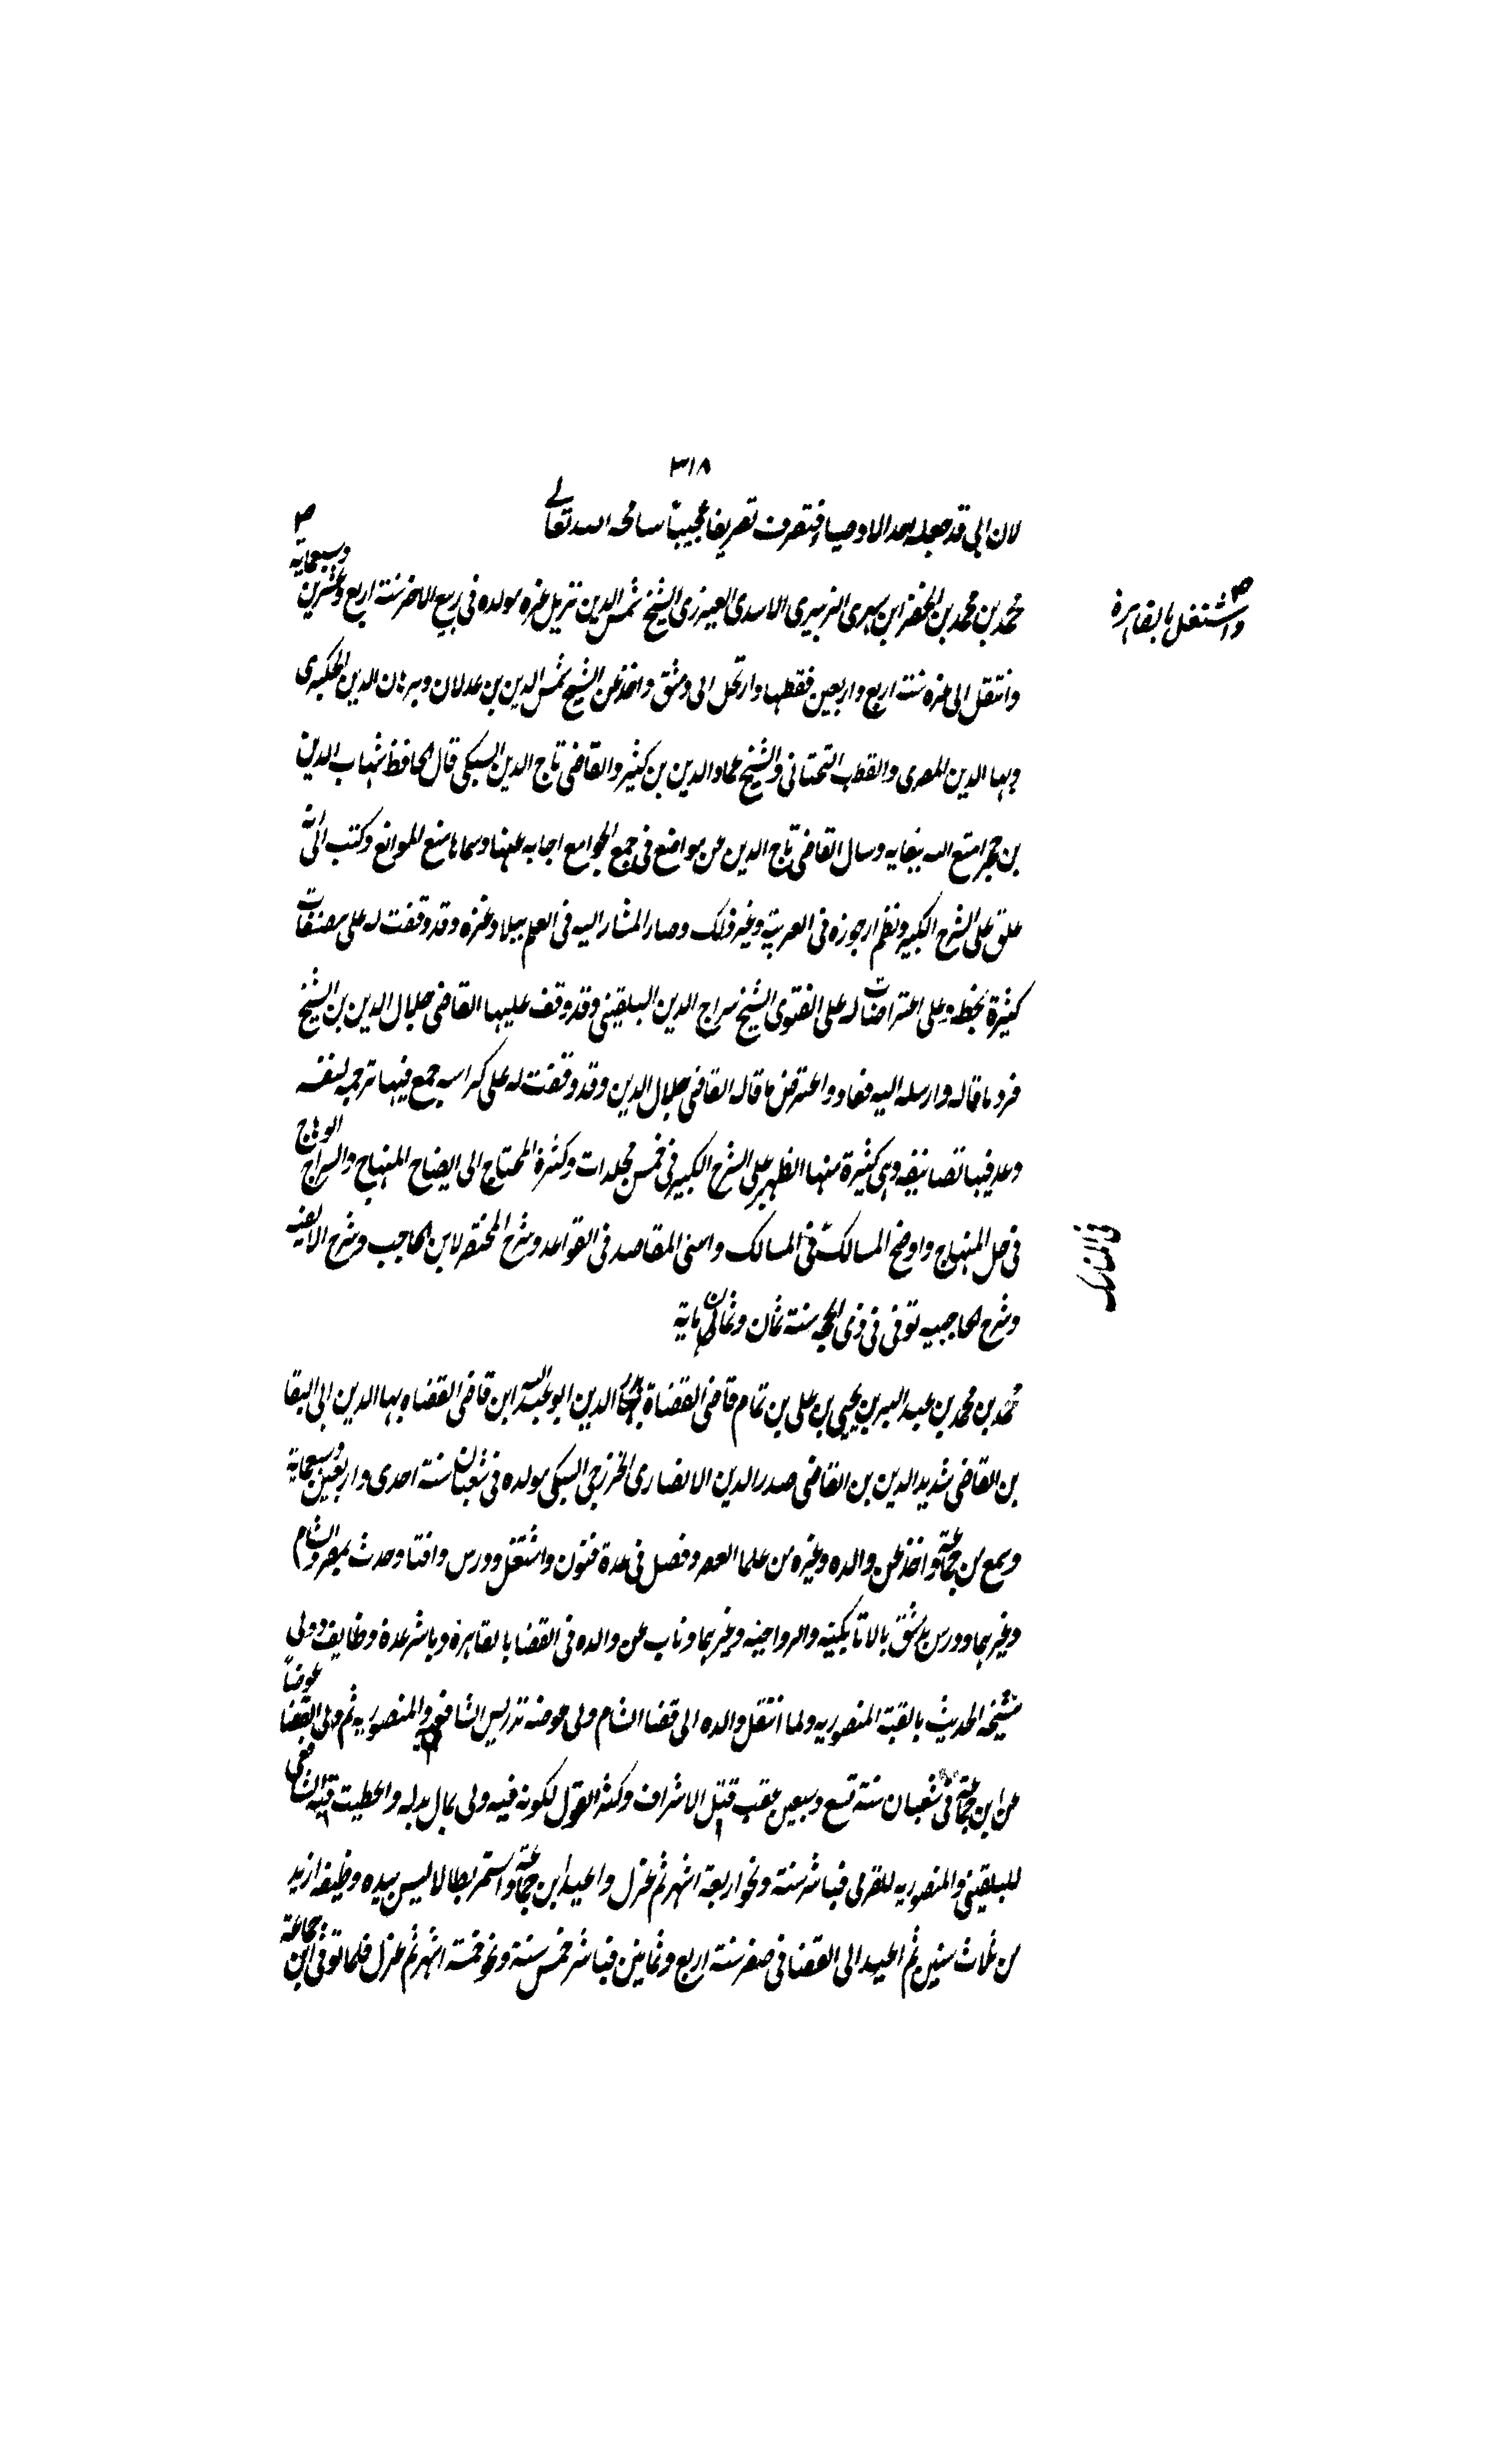 ٣١٨
لان ابي قد جعله احد الاوصيا فتصرف تصريفا عجيبا سامحه الله تعالى
محمد بن محمد بن الخضر ابن سمرى الزبيرى الاسدى العيزرى الشيخ شمس الدين نزيل غزه مولده فى ربيع الاخر سنة اربع وعشرين وسبعماية
واشتغل بالقاهرة
وانتقل الى غزه سنة اربع واربعين فقطنها وارتحل الى دمشق واخذ عن الشيخ شمس الدين بن عدلان وبرهان الدين الحكيرى
وبها الدين المصرى والقطب التحتانى والشيخ عماد الدين بن كثير والقاضى تاج الدين السبكى قال الحافظ شهاب الدين
بن حجر امتع الله ببقايه وسال القاضى تاج الدين عن مواضع فى جمع الجوامع اجابه عنها وسماها منع الموانع وكتب الى انه
علق على الشرح الكبير ونظم ارجوزه فى العربية وغير ذلك وصار المشار اليه فى العلم ببلاد غزه وقد وقفت له على مصنفات
كثيرة بخطه وعلى اعتراضات له على الفتوى الشيخ سراج الدين البلقينى وقد وقف عليها القاضى جلال الدين بن الشيخ
فرد ما قاله وارسله اليه فعاد واعترض ما قاله القاضى جلال الدين وقد وقفت له على كراسه جمع فيها ترجمه لنفسه
وعد فيها تصانيفه وهى كثيرة منها الظهير على الشرح الكبير فى خمس مجلدات وكثرة المحتاج الى ايضاح المنهاج والسراج الوهاج
فى حل المنهاج واوضح المسالك فى المسالك واسنى المقاصد فى القواعد وشرح المختصر لابن الحاجب وشرح الالفيه
فى المناسك
وشرح الحاجبيه توفى فى ذى الحجه سنة ثمان وثمان ماية
محمد بن محمد بن عبد البر بن يحيى بن على بن تمام قاضى القضاة بدر الدين ابو عبد الله ابن قاضى القضاه بها الدين ابى البقا
بن القاضى شديد الدين بن القاضى صدر الدين الانصارى الخزرجى السبكى مولده فى شعبان سنة احدى واربعين وسبعماية
وسمع من جماعة واخذ عن والده وغيره من علما العصر وفضل فى عدة فنون واشتغل ودرس وافتا وحدث بمصر والشام
وغيرهما ودرس بدمشق بالاتابكيه والرواحيه وغيرهما وناب عن والده فى القضا بالقاهرة وباشر عدة وظايف وولى
مشيخة الحديث بالقبة المنصوريه ولما انتقل والده الى قضا الشام ولى عوضه تدريس الشافعى والمنصوريه ثم ولى القضا عوضا
عن ابن جماعة فى شعبان سنة تسع وسبعين عقب قتل الاشراف وكثر القول لكونه فيه ولى بمال بدله واعطيت قبة الشافعى
للبلقينى والمنصوريه للقرمى فباشر سنة ونحو اربعة اشهر ثم عزل واعيد ابن جماعة واستمر بطالا ليس بيده وظيفه ازيد
من ثلاث سنين ثم اعيد الى القضا فى صفر سنة اربع وثمانين فباشر خمس سنة ونحو خمسة اشهر ثم عزل فلما توفى ابن جماعة